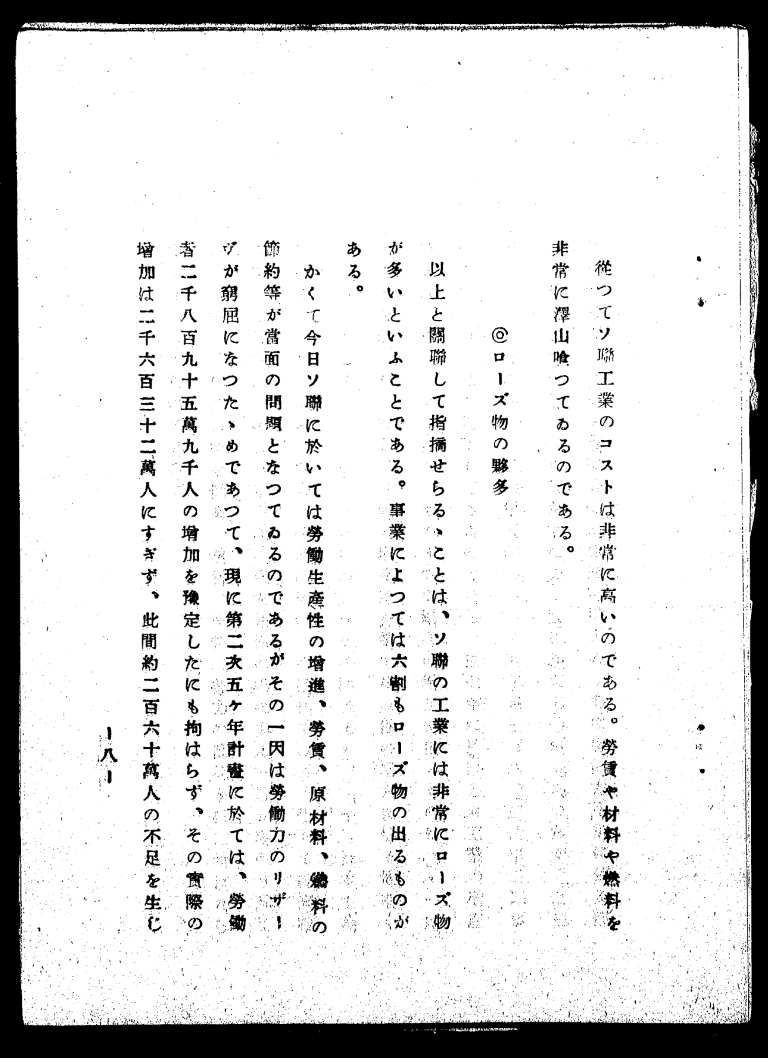 從つてソ聯工業のコストは非常に高いのである。勞賃や材料や燃料を
非常に澤山喰つてゐるのである。
◎ローズ物の夥多
以上と關聯して指摘せらるゝことは、ソ聯の工業には非常にローズ物
が多いといふことである。事業によつては六割もローズ物の出るものが
ある。
かくて今日ソ聯に於いては勞働生產性の增進、勞賃、原材料、燃料の
節約等が當面の問題となつてゐるのであるがその一因は勞働力のリザー
ヴが窮屈になつたゝめであつて、現に第二次五ケ年計畫に於ては、勞働
者二千八百九十五萬九千人の增加を豫定したにも拘はらず、その實際の
增加は二千六百三十二萬人にすぎず、此間約二百六十萬人の不足を生じ
ー八ー